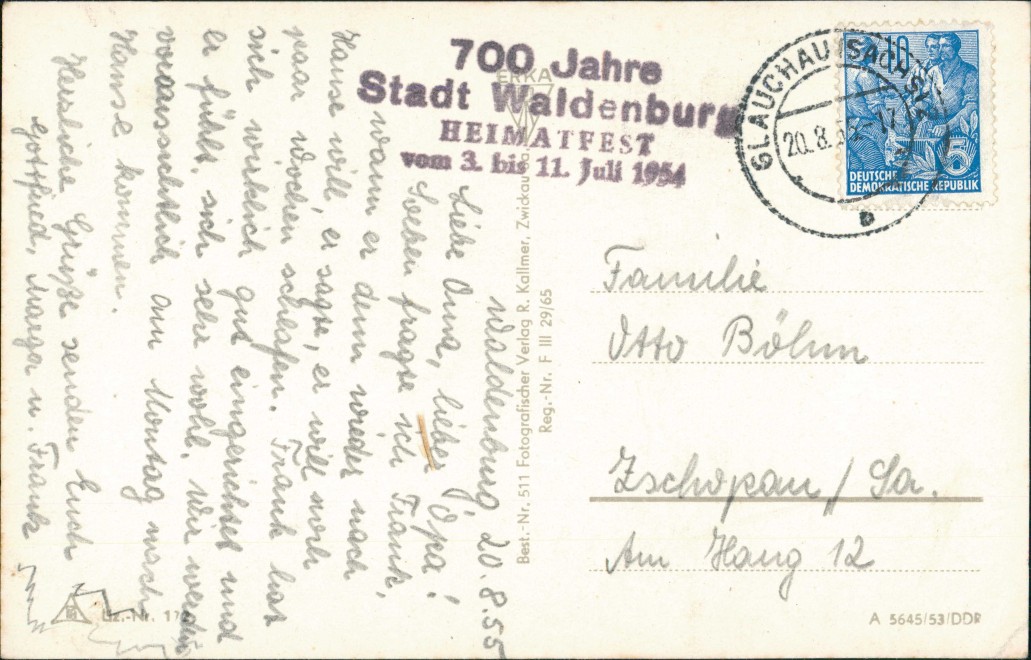 700 Jahre
Stadt Waldenburg
HEIMATFEST
vom 3. bis 11. Juli 1954
GLAUCHAU (SACHS)
20.8.
10
5
DEUTSCHE
DEMOKRATISCHE REPUBLIK
Waldenburg 20.8.55
Liebe Oma, lieber Opa!
Soeben fragte ich Frank,
wann er denn wieder nach
Hause will, er sagte, er will noch
paar Wochen schlafen. Frank hat
sich wirklich gut eingerichtet und
er fühlt sich sehr wohl. Wir werden
voraussichtlich am Montag nach
Hause kommen.
Herzliche Grüße senden Euch
Gottfried, Marga u. Frank
ERKA
Best.-Nr. 511 Fotografischer Verlag R. Kallmer, Zwickau
Reg.-Nr. F III 29/65
Familie
Otto Böhm
Zschopau / Sa.
Am Hang 12
Liz.-Nr.
A 5645/53/DDR